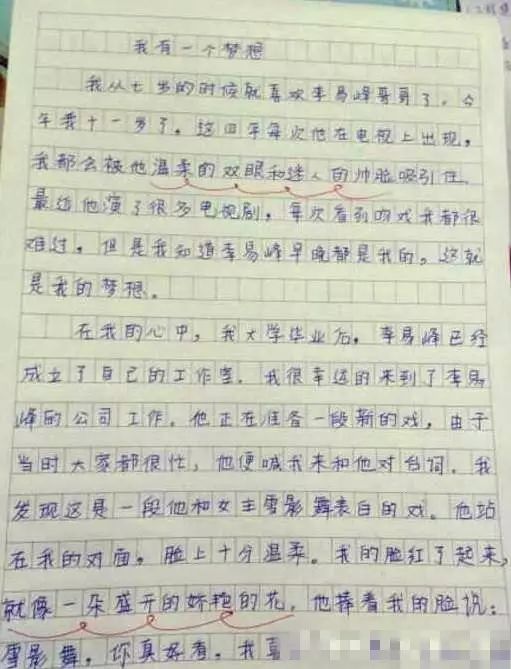 我有一个梦想
我从七岁的时候就喜欢李易峰哥哥了，今
年我十一岁了。这四年每次他在电视上出现，
我都会被他温柔的双眼和迷人的帅脸吸引住。
最近他演了很多电视剧，每次看到吻戏我都很
难过，但是我知道李易峰早晚都是我的，这就
是我的梦想。
在我的心中，我大学毕业后，李易峰已经
成立了自己的工作室。我很幸运的来到了李易
峰的公司工作，他正在准备一段新的戏，由于
当时大家都很忙，他便喊我来和他对台词，我
发现这是一段他和女主雪影舞表白的戏。他站
在我的对面，脸上十分温柔。我的脸红了起来，
就像一朵盛开的娇艳的花，他捧着我的脸说：
雪影舞，你真好看，我喜